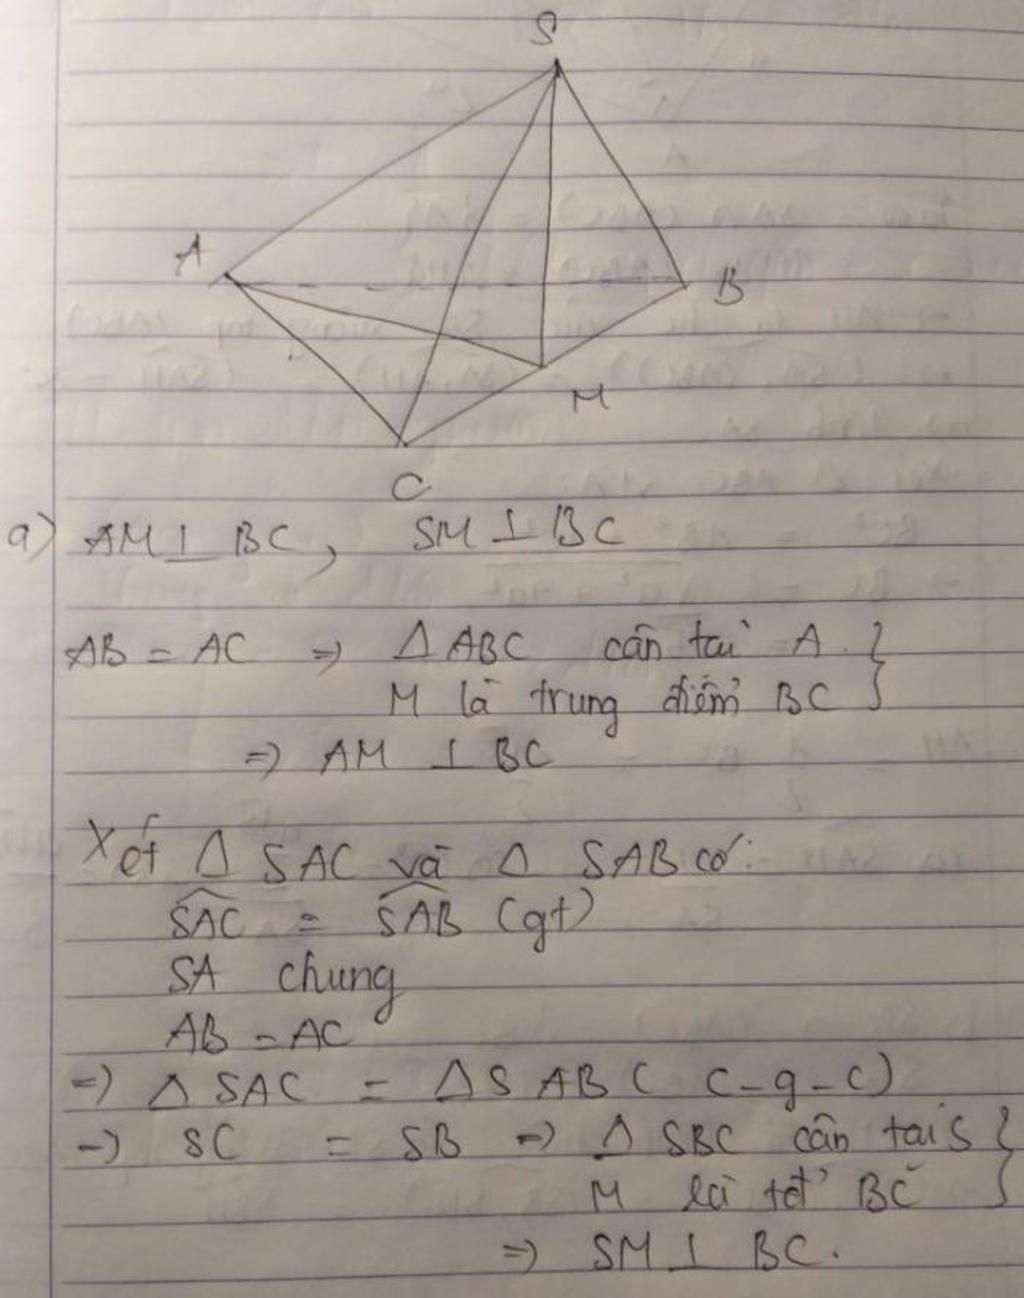 S
A
B
M
C
a) AM ⊥ BC, SM ⊥ BC
AB = AC => Δ ABC cân tại A }
M là trung điểm BC
=> AM ⊥ BC
Xét Δ SAC và Δ SAB có:
\widehat{SAC} = \widehat{SAB} (gt)
SA chung
AB = AC
=> Δ SAC = Δ SAB ( c-g-c)
-> SC = SB => Δ SBC cân tại S }
M là tđ BC
=> SM ⊥ BC.